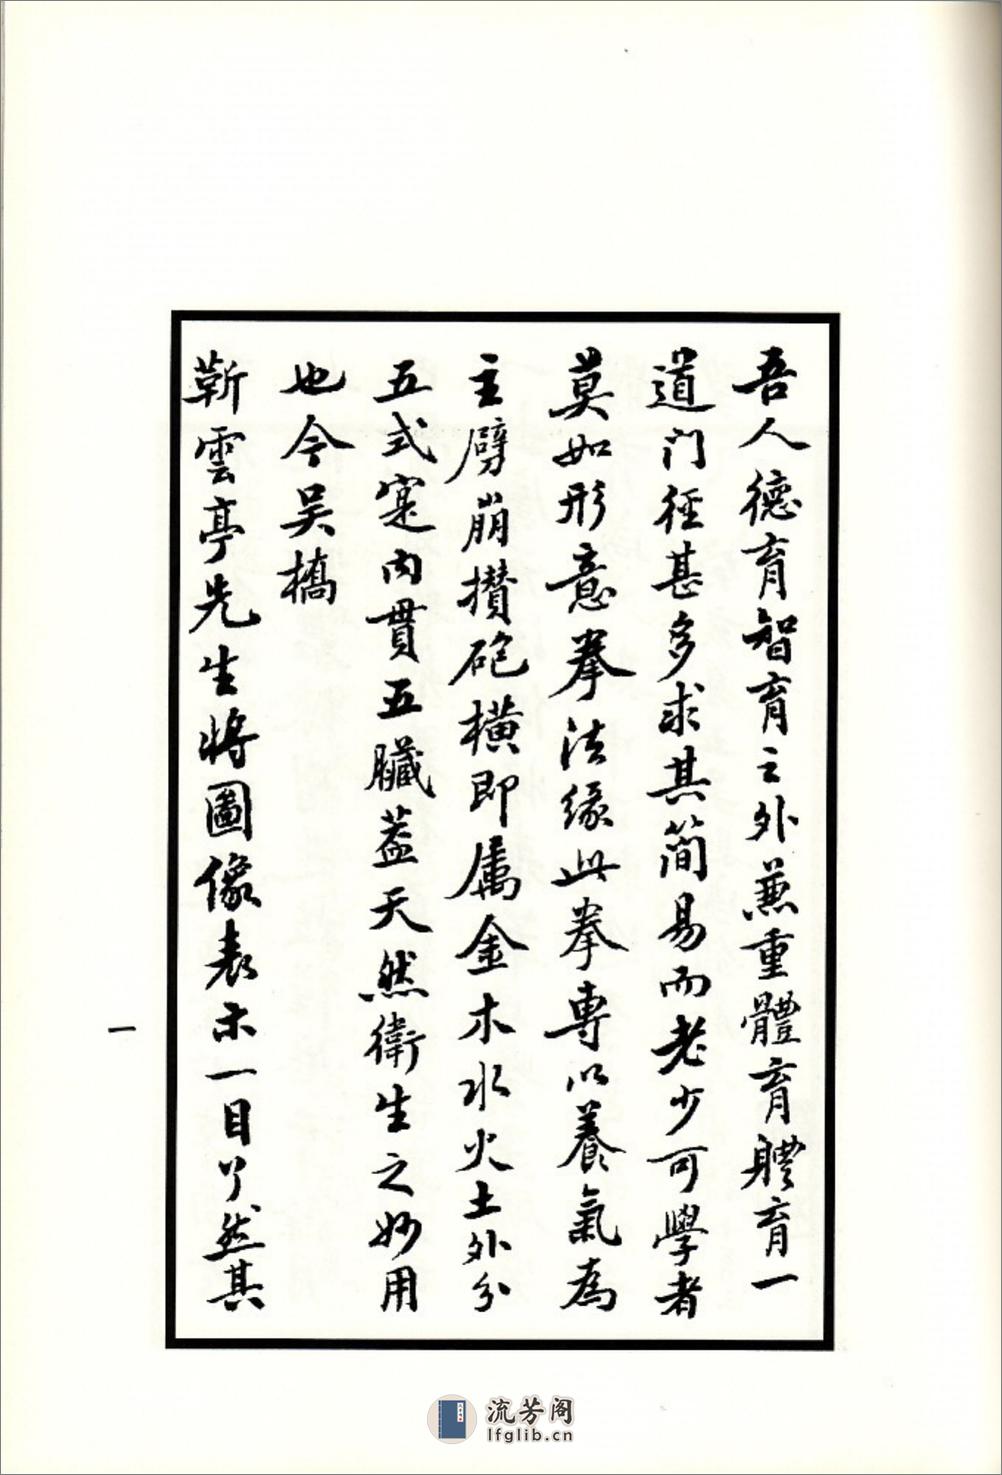 吾人德育智育之外兼重體育體育一
道门徑甚多求其简易而老少可學者
莫如形意拳法緣此拳專以養氣為
主劈崩攢砲橫即屬金木水火土外分
五式寔內貫五臟蓋天然衛生之妙用
也今吴橋
靳雲亭先生將圖像表示一目了然其
一
流芳阁
lfglib.cn